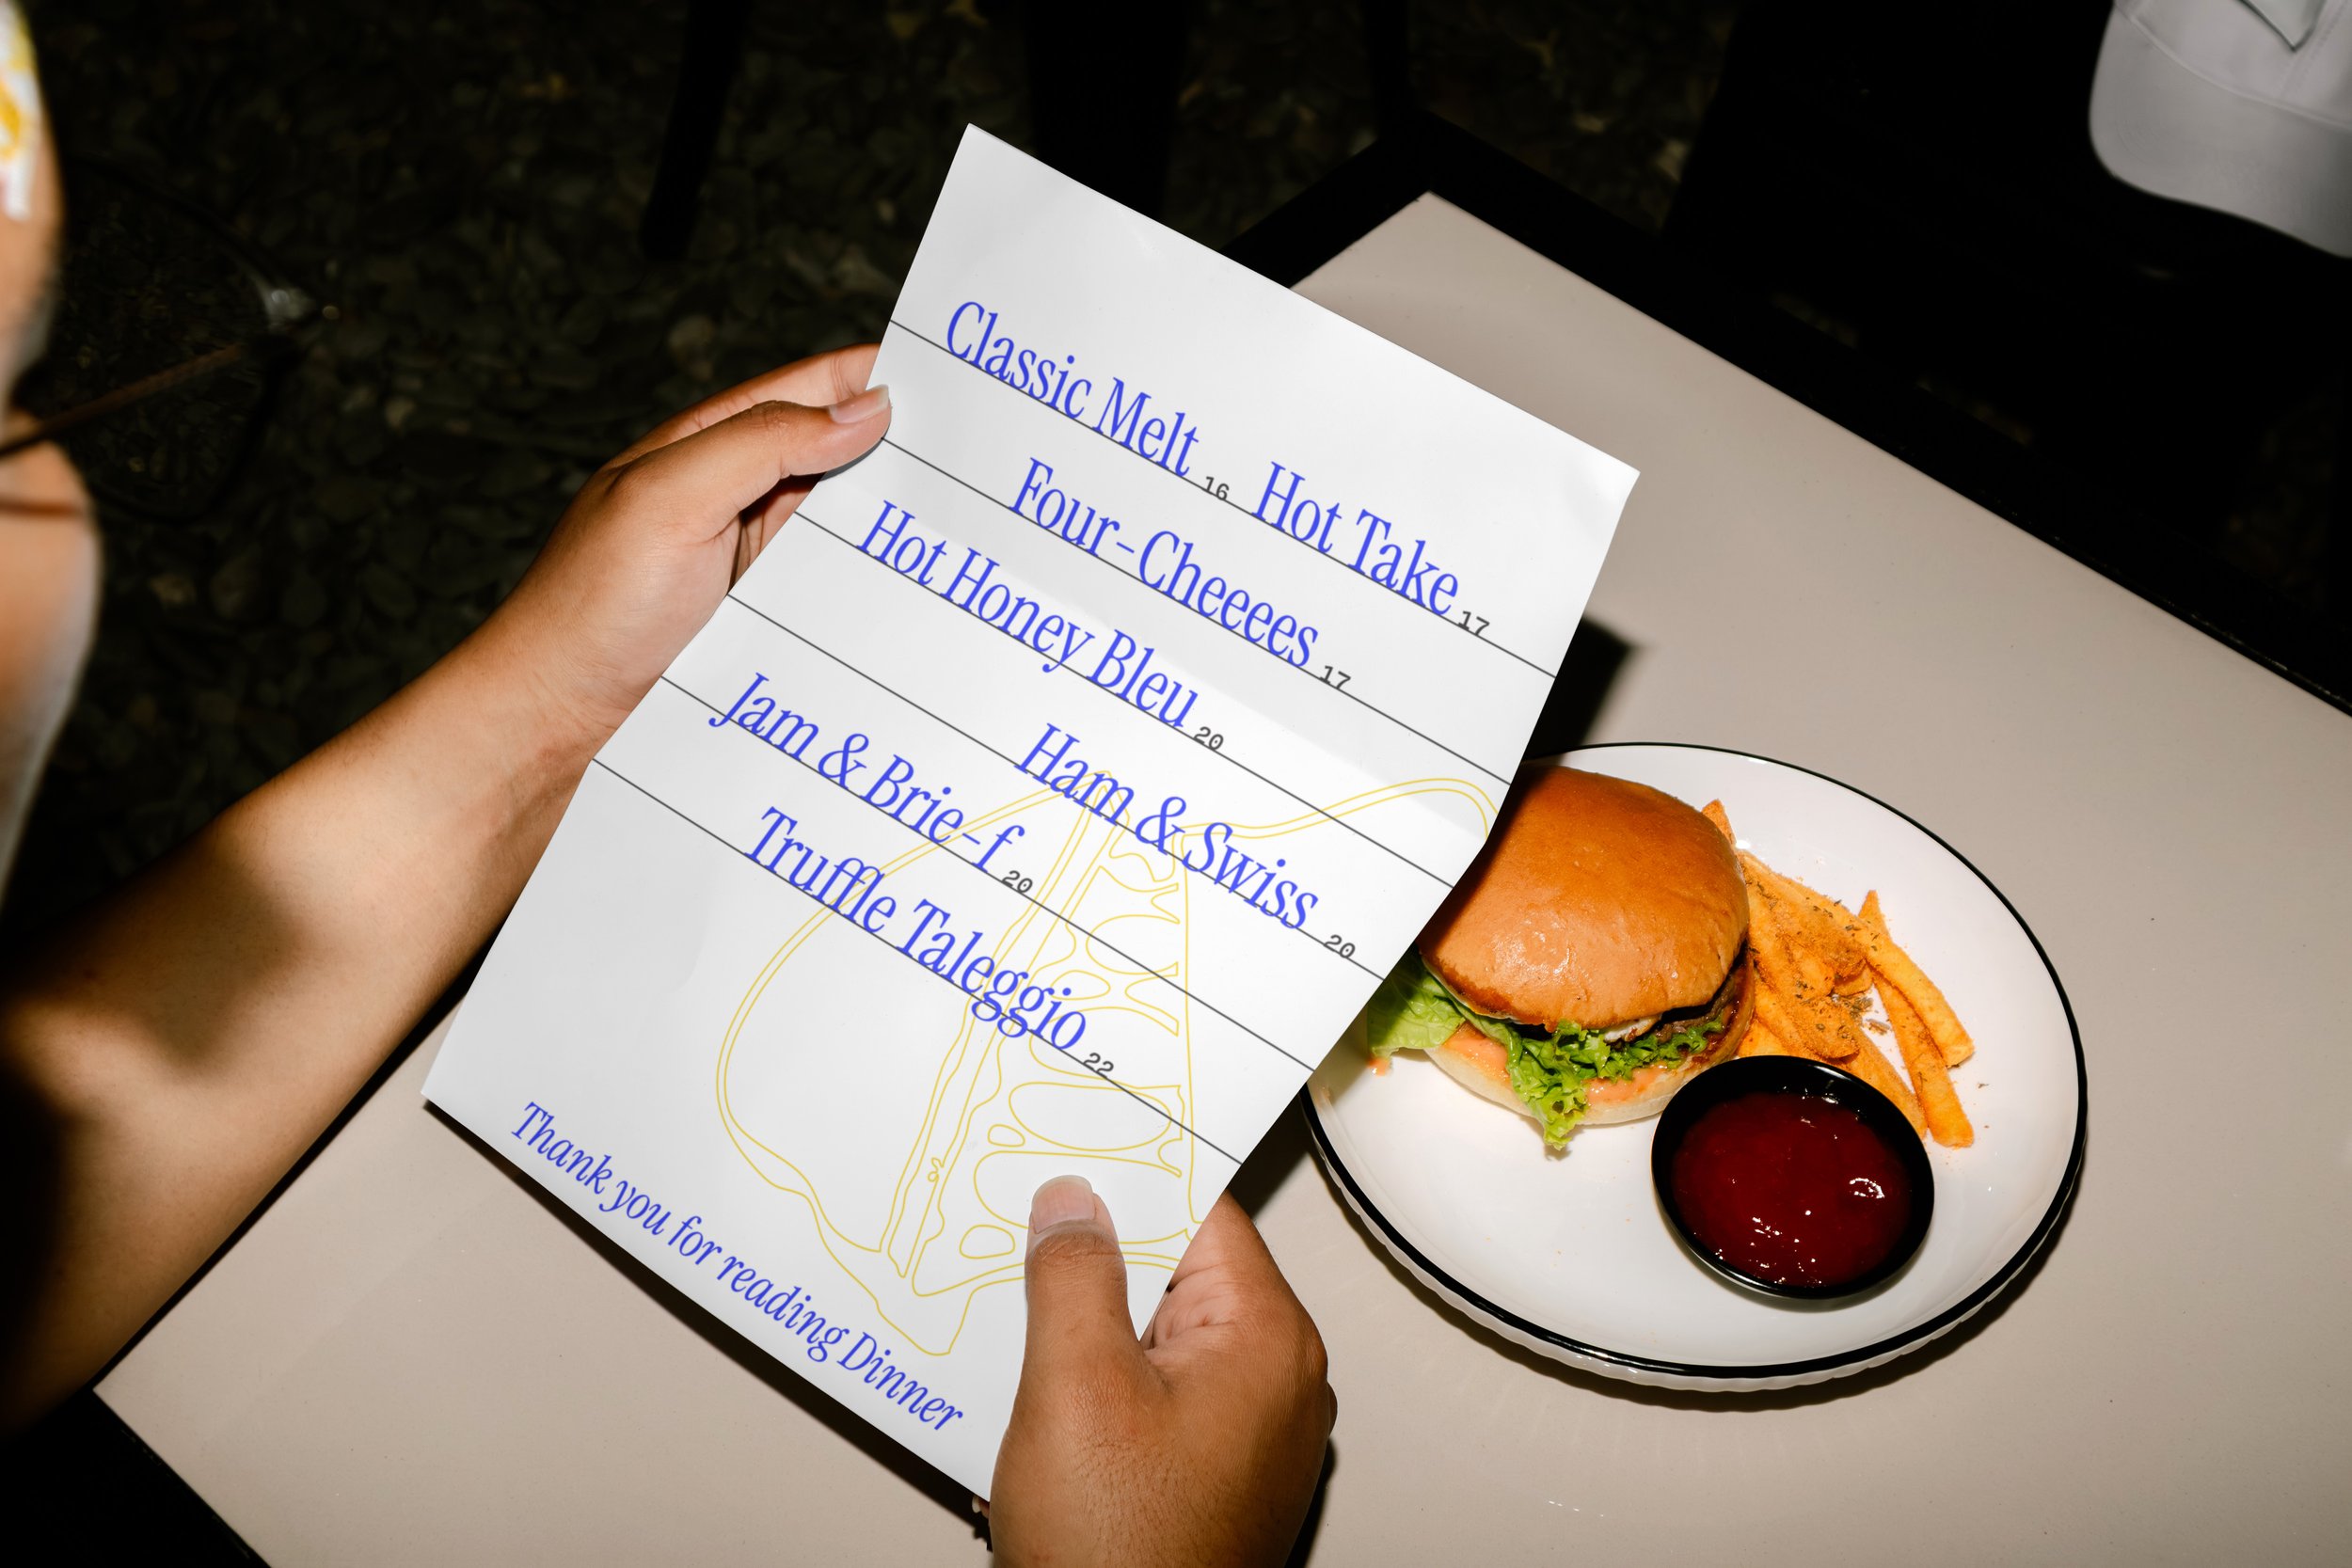 Classic Melt 16 Hot Take 17
Four-Cheeees 17
Hot Honey Bleu 20
Ham & Swiss 20
Jam & Brie-f 20
Truffle Taleggio 22
Thank you for reading Dinner